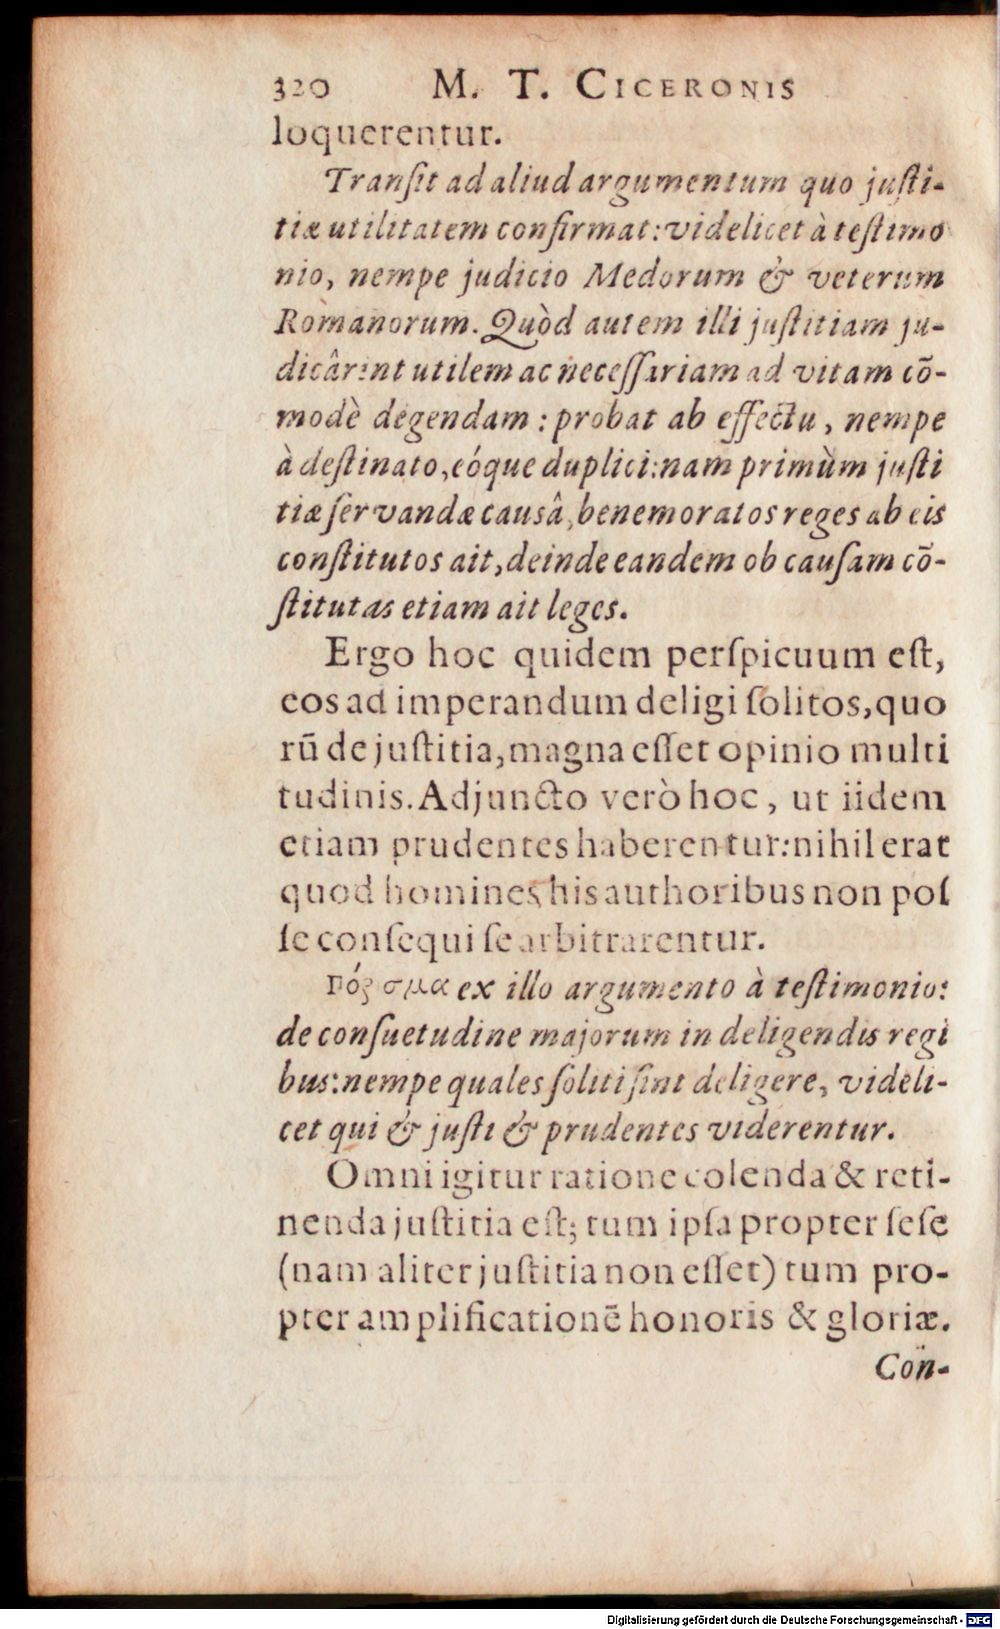 320 M. T. CICERONIS
loquerentur.
Tranſit ad aliud argumentum quo juſti-
tiæ utilitatem confirmat: videlicet à teſtimo
nio, nempe judicio Medorum & veterum
Romanorum. Quòd autem illi juſtitiam ju-
dicârint utilem ac neceſſariam ad vitam cõ-
modè degendam: probat ab effectu, nempe
à deſtinato, eóque duplici: nam primùm juſti
tiæ ſervandæ causâ, benemoratos reges ab eis
conſtitutos ait, deinde eandem ob cauſam cõ-
ſtitutas etiam ait leges.
Ergo hoc quidem perſpicuum eſt,
eos ad imperandum deligi ſolitos, quo
rũ de juſtitia, magna eſſet opinio multi
tudinis. Adjuncto verò hoc, ut iidem
etiam prudentes haberentur: nihil erat
quod homines his authoribus non poſ
ſe conſequi ſe arbitrarentur.
ex illo argumento à teſtimonio:
de conſuetudine majorum in deligendis regi
bus: nempe quales ſoliti ſint deligere, videli-
cet qui & juſti & prudentes viderentur.
Omni igitur ratione colenda & reti-
nenda juſtitia eſt; tum ipſa propter ſeſe
(nam aliter juſtitia non eſſet) tum pro-
pter amplificationẽ honoris & gloriæ.
Con-
Digitalisierung gefördert durch die Deutsche Forschungsgemeinschaft - DFG